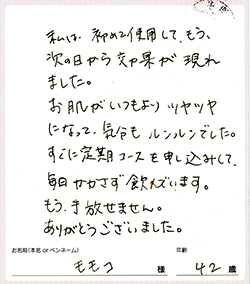 私は、初めて使用して、もう、
次の日から効果が現れ
ました。
お肌がいつもよりツヤツヤ
になって、気分もルンルンでした。
すぐに定期コースを申し込みして、
毎日かかさず飲んでいます。
もう、手放せません。
ありがとうございました。
お名前(本名 or ペンネーム) 年齢
モモコ 様 42 歳